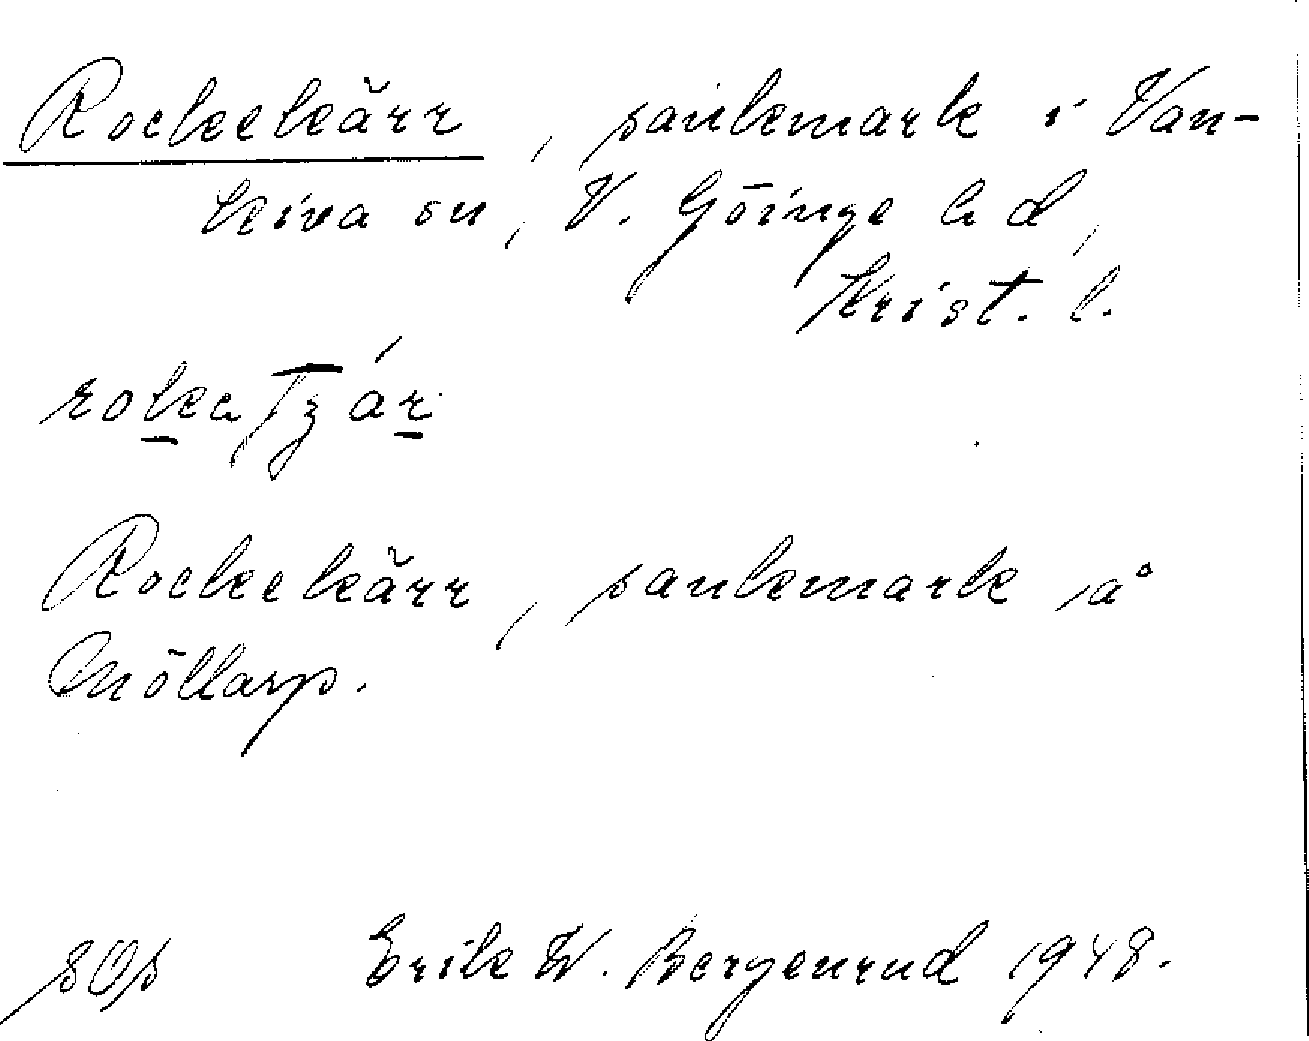 Rockekärr, sankmark i Van-
kiva sn, V. Göinge hd,
Krist. l.
Rockekärr, sankmark på
Möllarp.
Erik W. Bergenrud 1948.